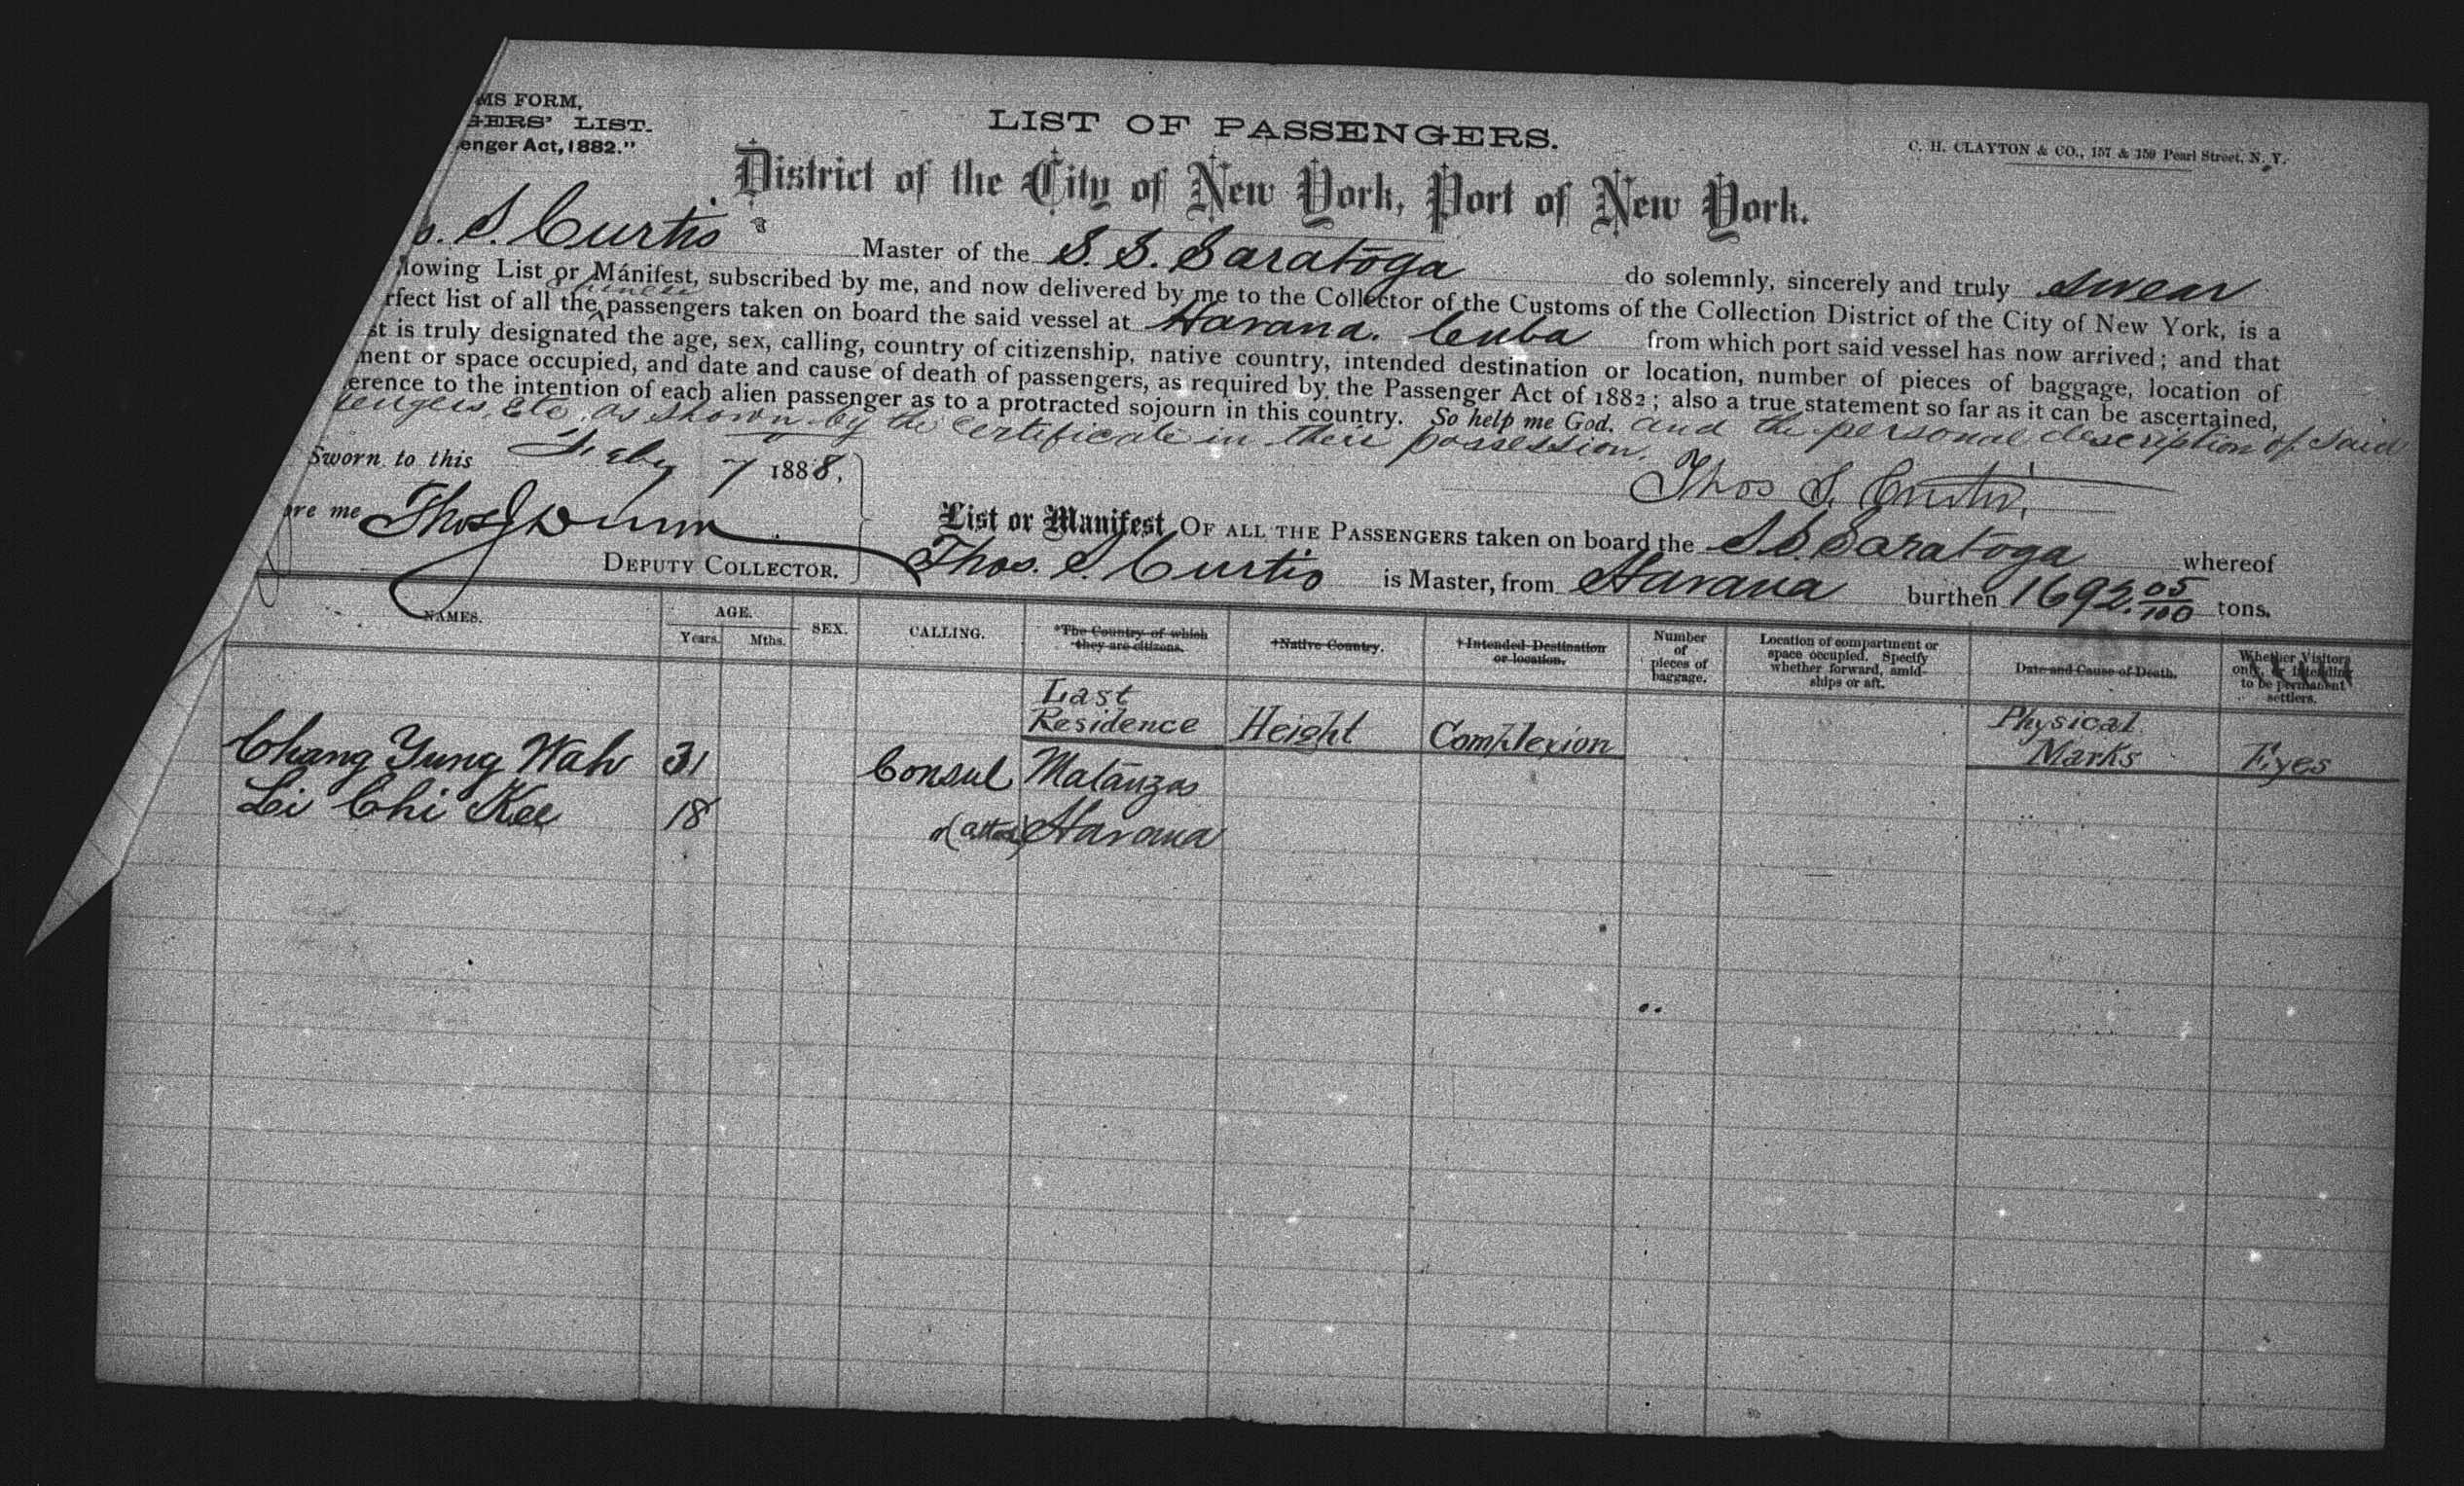 MS FORM,
GERS' LIST.
enger Act, 1882."
LIST OF PASSENGERS.
C. H. CLAYTON & CO., 157 & 159 Pearl Street, N. Y.
District of the City of New York, Port of New York.
S. Curtis Master of the S. S. Saratoga do solemnly, sincerely and truly swear
llowing List or Manifest, subscribed by me, and now delivered by me to the Collector of the Customs of the Collection District of the City of New York, is a
Chinese
rfect list of all the passengers taken on board the said vessel at Havana. Cuba from which port said vessel has now arrived; and that
st is truly designated the age, sex, calling, country of citizenship, native country, intended destination or location, number of pieces of baggage, location of
ment or space occupied, and date and cause of death of passengers, as required by the Passenger Act of 1882; also a true statement so far as it can be ascertained,
erence to the intention of each alien passenger as to a protracted sojourn in this country. So help me God. and the personal description of said
sengers, etc. as shown by the certificate in their possession.
Sworn to this Feby 7 1888,
Thos S. Curtis,
ore me Thos J Dunn
DEPUTY COLLECTOR.
List or Manifest OF ALL THE PASSENGERS taken on board the S.S. Saratoga whereof
Thos. S. Curtis is Master, from Havana burthen 1692. 05/100 tons.
NAMES.
AGE.
Years.
Mths.
SEX.
CALLING.
*The Country of which they are citizens.
†Native Country.
†Intended Destination or location.
Number of pieces of baggage.
Location of compartment or space occupied. Specify whether forward, amidships or aft.
Date and Cause of Death.
Whether Visitors only, or intending to be permanent settlers.
Last Residence Height Complexion Physical Marks Eyes
Chang Yung Wah 31 Consul Matanzas
Li Chi Kee 18 Havana